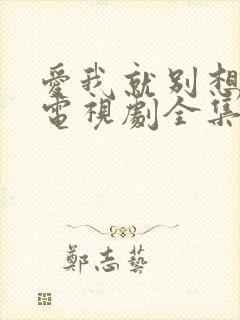 愛我就別想
電視劇全集
鄭志藝